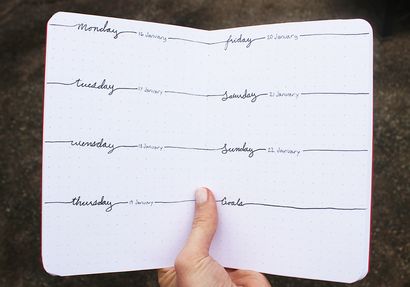 monday 16 January
tuesday 17 January
wensday 18 January
thursday 19 January
friday 20 January
saturday 21 January
Sunday 22 January
Goals